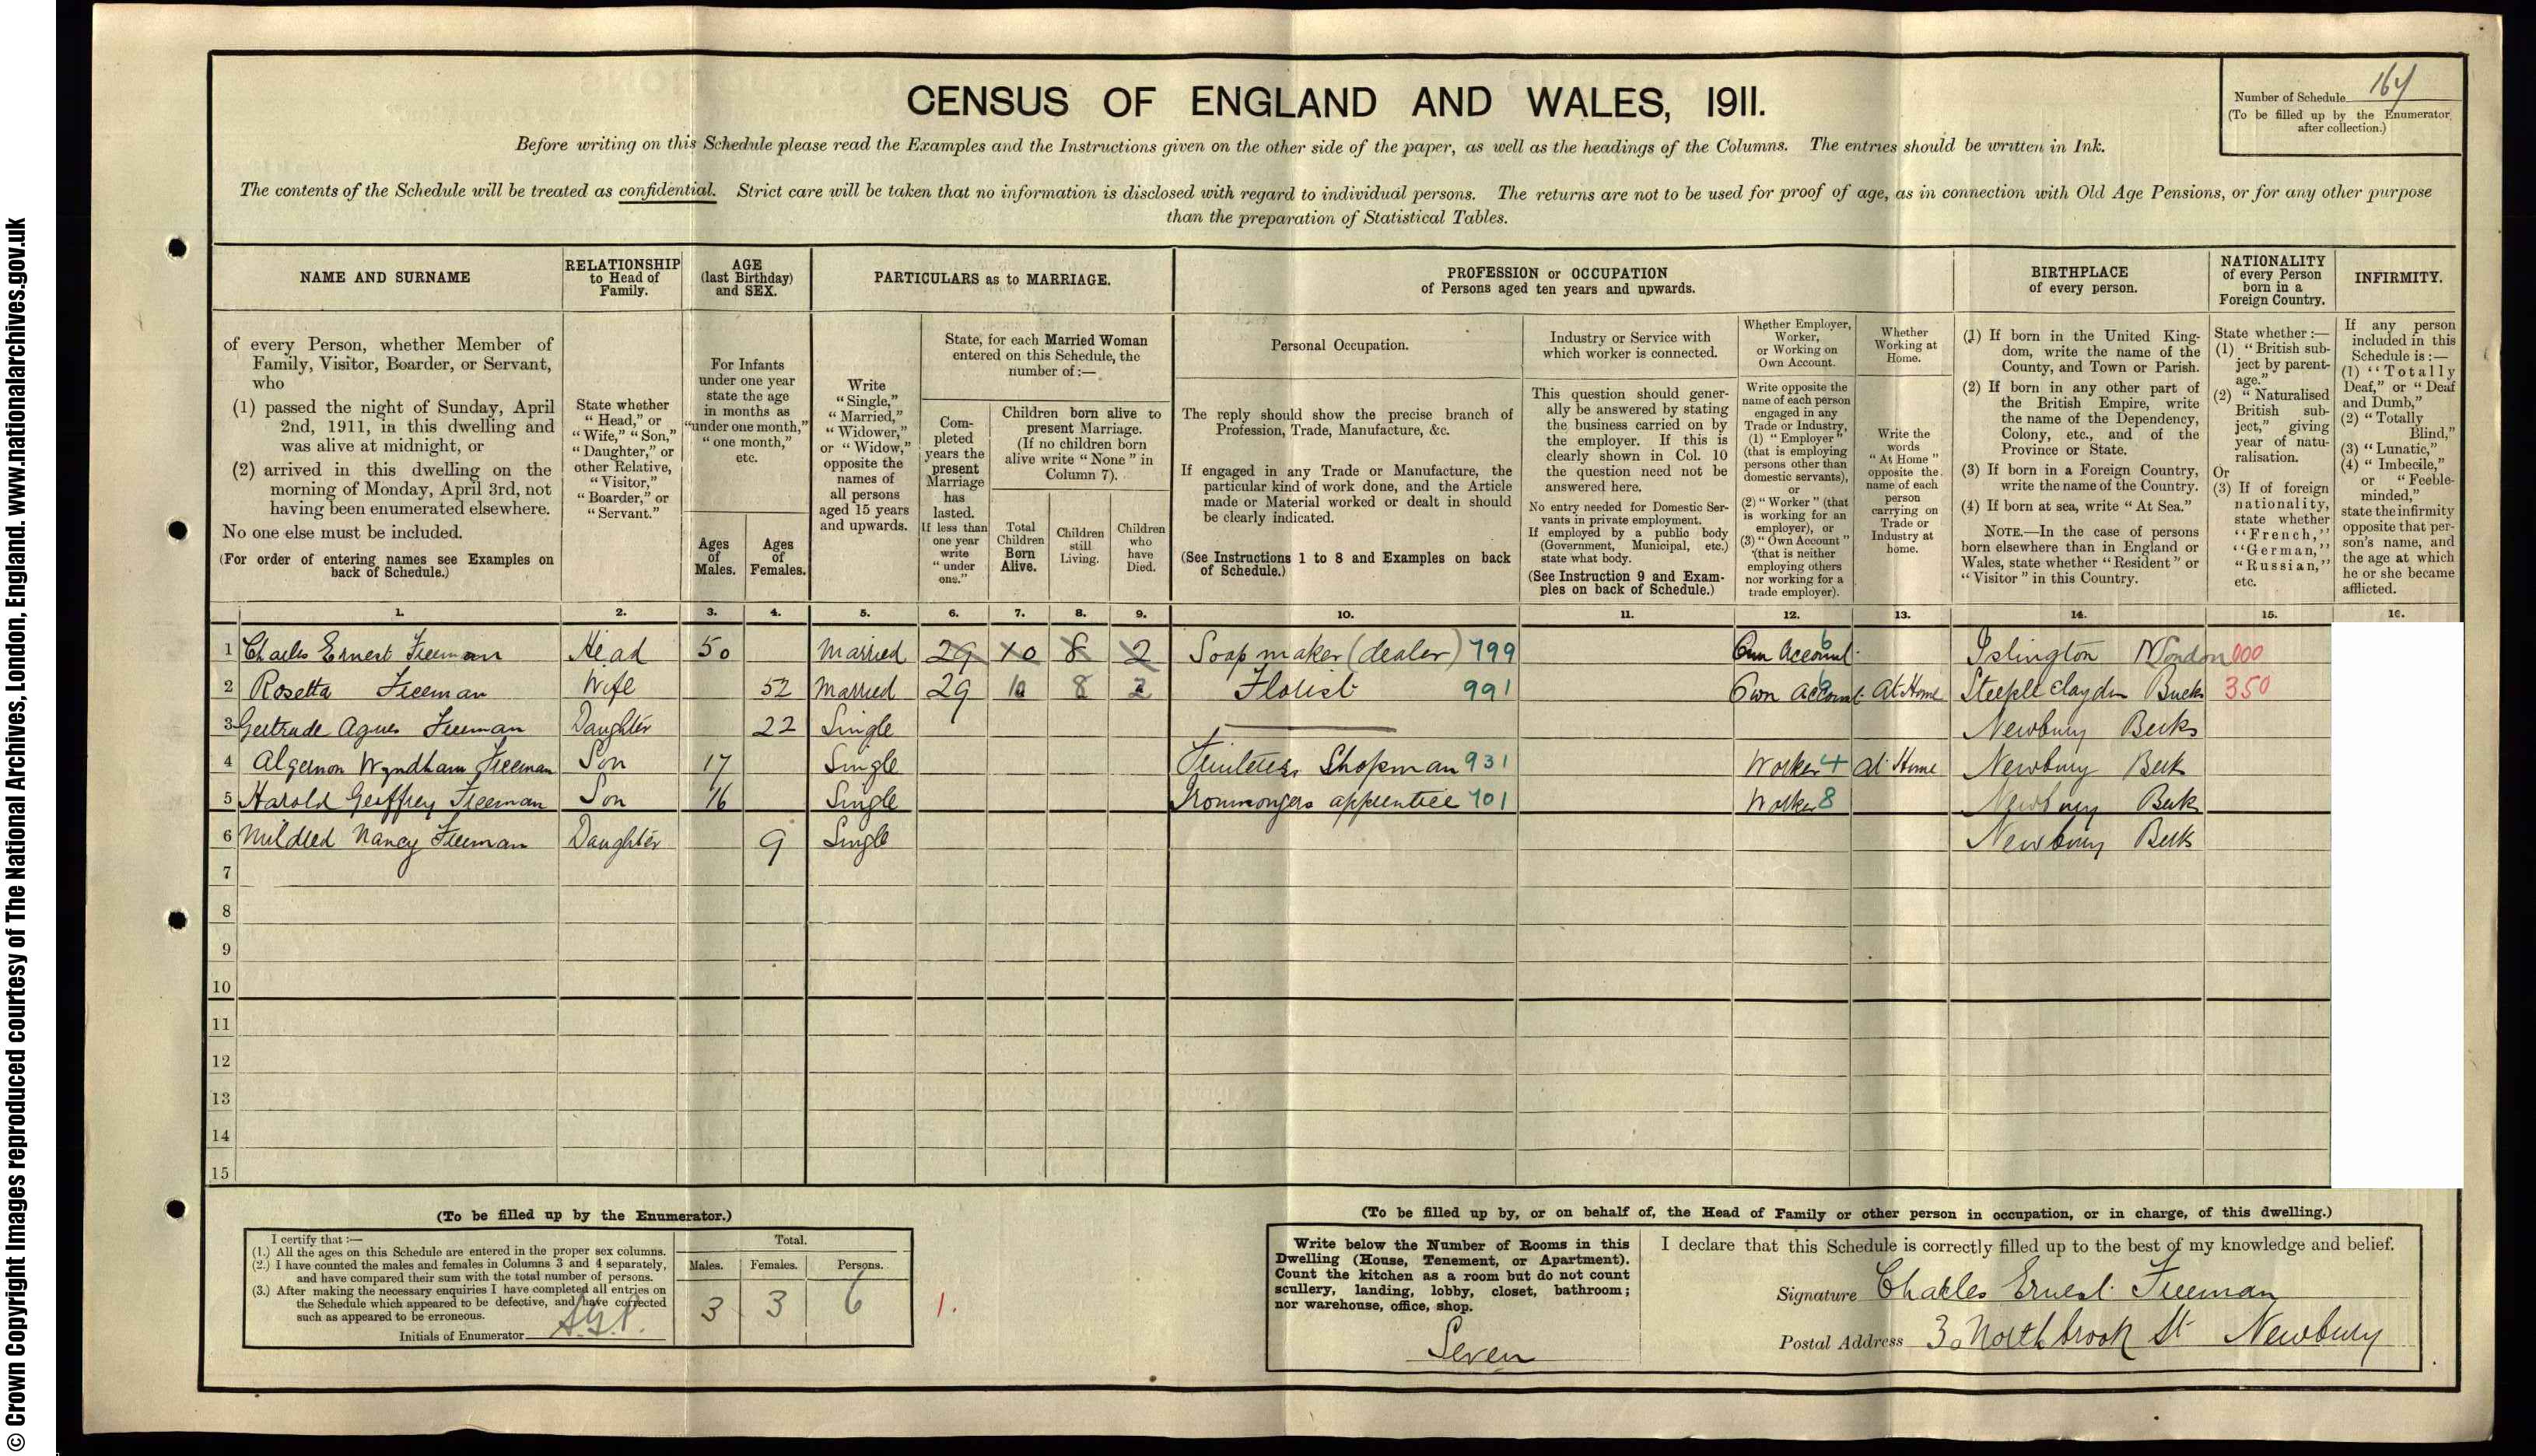 © Crown Copyright Images reproduced courtesy of The National Archives, London, England. www.nationalarchives.gov.uk
CENSUS OF ENGLAND AND WALES, 1911.
Number of Schedule 164
(To be filled up by the Enumerator after collection.)
Before writing on this Schedule please read the Examples and the Instructions given on the other side of the paper, as well as the headings of the Columns. The entries should be written in Ink.
The contents of the Schedule will be treated as confidential. Strict care will be taken that no information is disclosed with regard to individual persons. The returns are not to be used for proof of age, as in connection with Old Age Pensions, or for any other purpose
than the preparation of Statistical Tables.
NAME AND SURNAME
of every Person, whether Member of
Family, Visitor, Boarder, or Servant,
who
(1) passed the night of Sunday, April
2nd, 1911, in this dwelling and
was alive at midnight, or
(2) arrived in this dwelling on the
morning of Monday, April 3rd, not
having been enumerated elsewhere.
No one else must be included.
(For order of entering names see Examples on
back of Schedule.)
RELATIONSHIP
to Head of
Family.
State whether
"Head," or
"Wife," "Son,"
"Daughter," or
other Relative,
"Visitor,"
"Boarder," or
"Servant."
AGE
(last Birthday)
and SEX.
For Infants
under one year
state the age
in months as
"under one month,"
"one month,"
etc.
Ages
of
Males.
Ages
of
Females.
PARTICULARS as to MARRIAGE.
Write
"Single,"
"Married,"
"Widower,"
or "Widow,"
opposite the
names of
all persons
aged 15 years
and upwards.
State, for each Married Woman
entered on this Schedule, the
number of:—
Com-
pleted
years the
present
Marriage
has
lasted.
If less than
one year
write
"under
one."
Children born alive to
present Marriage.
(If no children born
alive write "None" in
Column 7).
Total
Children
Born
Alive.
Children
still
Living.
Children
who
have
Died.
PROFESSION or OCCUPATION
of Persons aged ten years and upwards.
Personal Occupation.
The reply should show the precise branch of
Profession, Trade, Manufacture, &c.
If engaged in any Trade or Manufacture, the
particular kind of work done, and the Article
made or Material worked or dealt in should
be clearly indicated.
(See Instructions 1 to 8 and Examples on back
of Schedule.)
Industry or Service with
which worker is connected.
This question should gener-
ally be answered by stating
the business carried on by
the employer. If this is
clearly shown in Col. 10
the question need not be
answered here.
No entry needed for Domestic Ser-
vants in private employment.
If employed by a public body
(Government, Municipal, etc.)
state what body.
(See Instruction 9 and Exam-
ples on back of Schedule.)
Whether Employer,
Worker,
or Working on
Own Account.
Write opposite the
name of each person
engaged in any
Trade or Industry,
(1) "Employer"
(that is employing
persons other than
domestic servants),
or
(2) "Worker" (that
is working for an
employer), or
(3) "Own Account"
(that is neither
employing others
nor working for a
trade employer).
Whether
Working at
Home.
Write the
words
"At Home"
opposite the
name of each
person
carrying on
Trade or
Industry at
home.
BIRTHPLACE
of every person.
(1) If born in the United King-
dom, write the name of the
County, and Town or Parish.
(2) If born in any other part of
the British Empire, write
the name of the Dependency,
Colony, etc., and of the
Province or State.
(3) If born in a Foreign Country,
write the name of the Country.
(4) If born at sea, write "At Sea."
NOTE.—In the case of persons
born elsewhere than in England or
Wales, state whether "Resident" or
"Visitor" in this Country.
NATIONALITY
of every Person
born in a
Foreign Country.
State whether :—
(1) "British sub-
ject by parent-
age."
(2) "Naturalised
British sub-
ject," giving
year of natu-
ralisation.
Or
(3) If of foreign
nationality,
state whether
"French,"
"German,"
"Russian,"
etc.
INFIRMITY.
If any person
included in this
Schedule is:—
(1) "Totally
Deaf," or "Deaf
and Dumb,"
(2) "Totally
Blind,"
(3) "Lunatic,"
(4) "Imbecile,"
or "Feeble-
minded,"
state the infirmity
opposite that per-
son's name, and
the age at which
he or she became
afflicted.
1. 2. 3. 4. 5. 6. 7. 8. 9. 10. 11. 12. 13. 14. 15. 16.
1 Charles Ernest Freeman Head 50 Married 29 10 8 2 Soap maker (dealer) 799 Own Account 6 Islington N London 000
2 Rosetta Freeman Wife 52 Married 29 10 8 2 Florist 991 Own Account 6 At Home Steeple Claydon Bucks 350
3 Gertrude Agnes Freeman Daughter 22 Single Newbury Berks
4 Algernon Wyndham Freeman Son 17 Single Fruiterers Shopman 931 Worker 4 At Home Newbury Berk
5 Harold Geoffrey Freeman Son 16 Single Ironmongers apprentice 701 Worker 8 Newbury Berk
6 Mildred Nancy Freeman Daughter 9 Single Newbury Berks
7
8
9
10
11
12
13
14
15
(To be filled up by the Enumerator.)
I certify that:—
(1.) All the ages on this Schedule are entered in the proper sex columns.
(2.) I have counted the males and females in Columns 3 and 4 separately,
and have compared their sum with the total number of persons.
(3.) After making the necessary enquiries I have completed all entries on
the Schedule which appeared to be defective, and have corrected
such as appeared to be erroneous.
Initials of Enumerator
Total.
Males. Females. Persons.
3 3 6
1.
(To be filled up by, or on behalf of, the Head of Family or other person in occupation, or in charge, of this dwelling.)
Write below the Number of Rooms in this
Dwelling (House, Tenement, or Apartment).
Count the kitchen as a room but do not count
scullery, landing, lobby, closet, bathroom;
nor warehouse, office, shop.
Seven
I declare that this Schedule is correctly filled up to the best of my knowledge and belief.
Signature Charles Ernest Freeman
Postal Address 30 Northbrook St Newbury